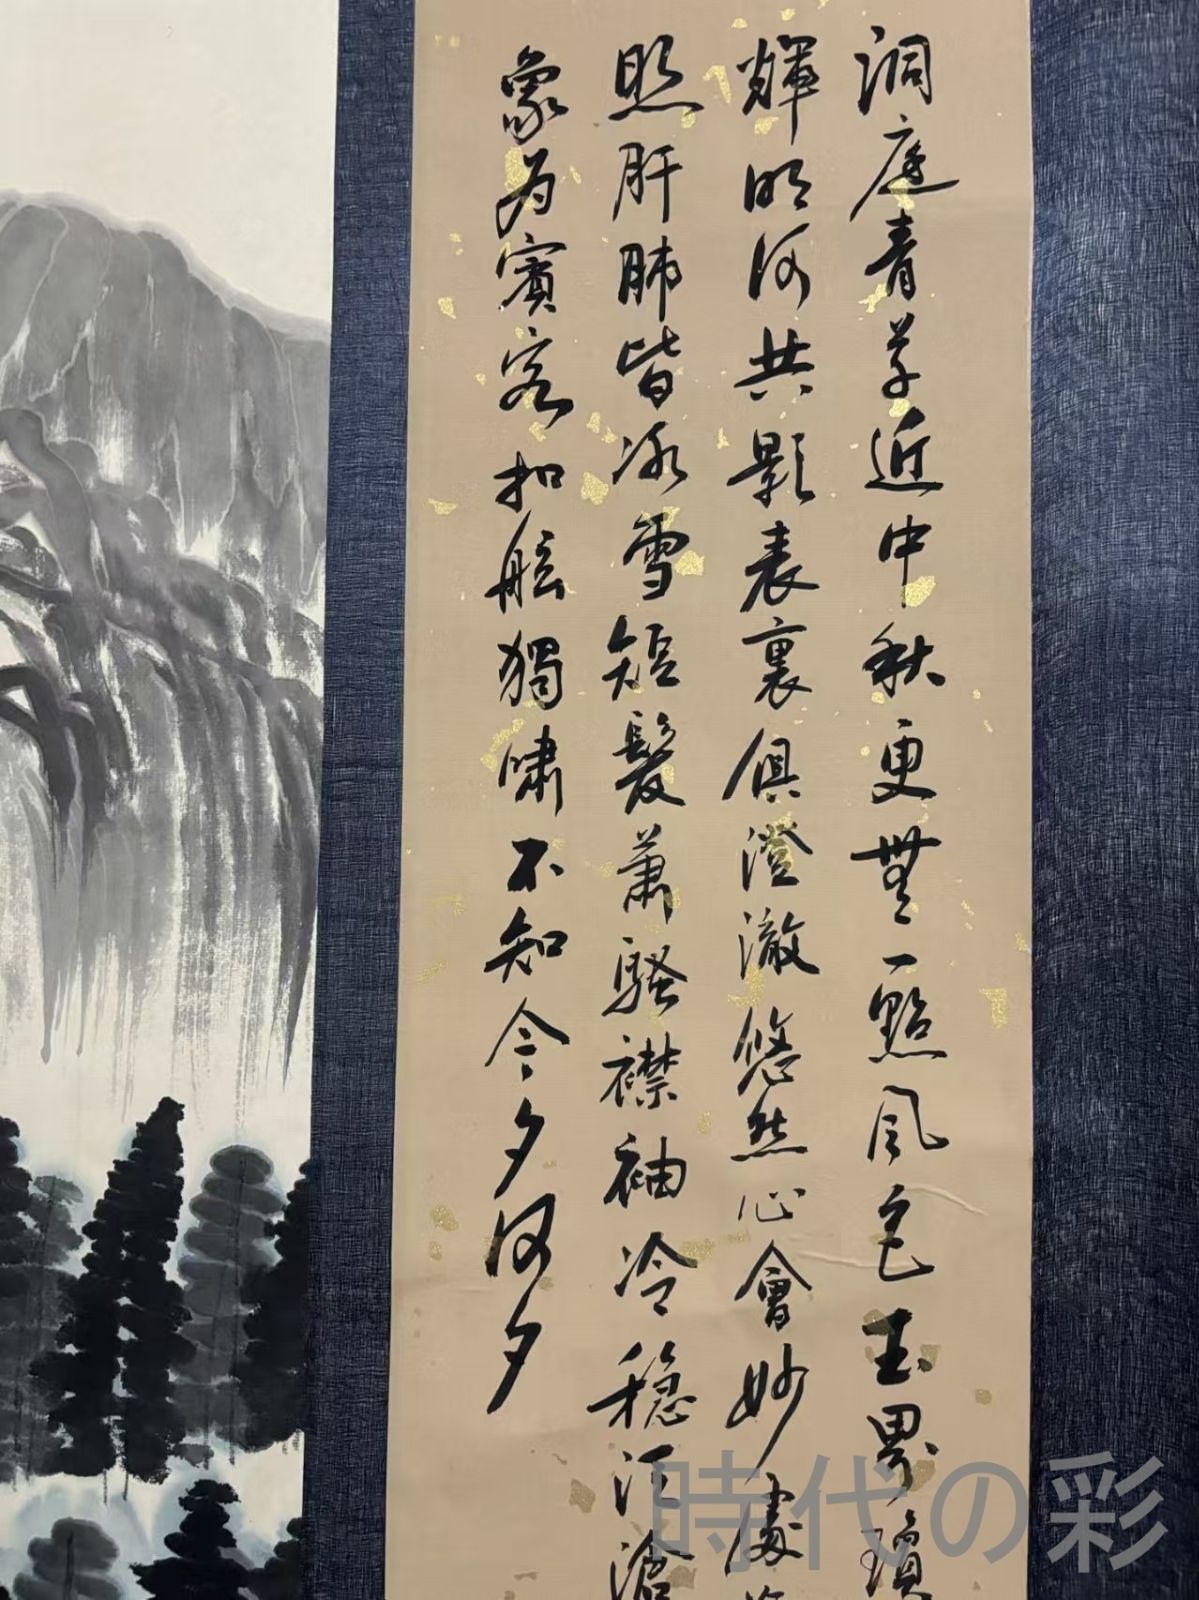 洞庭青草近中秋更無一點風色玉界瓊
輝明河共影表裏俱澄澈悠然心會妙處
照肝肺皆冰雪短髮蕭騷襟袖冷穩泛滄
象為賓客扣舷獨嘯不知今夕何夕
時代の彩